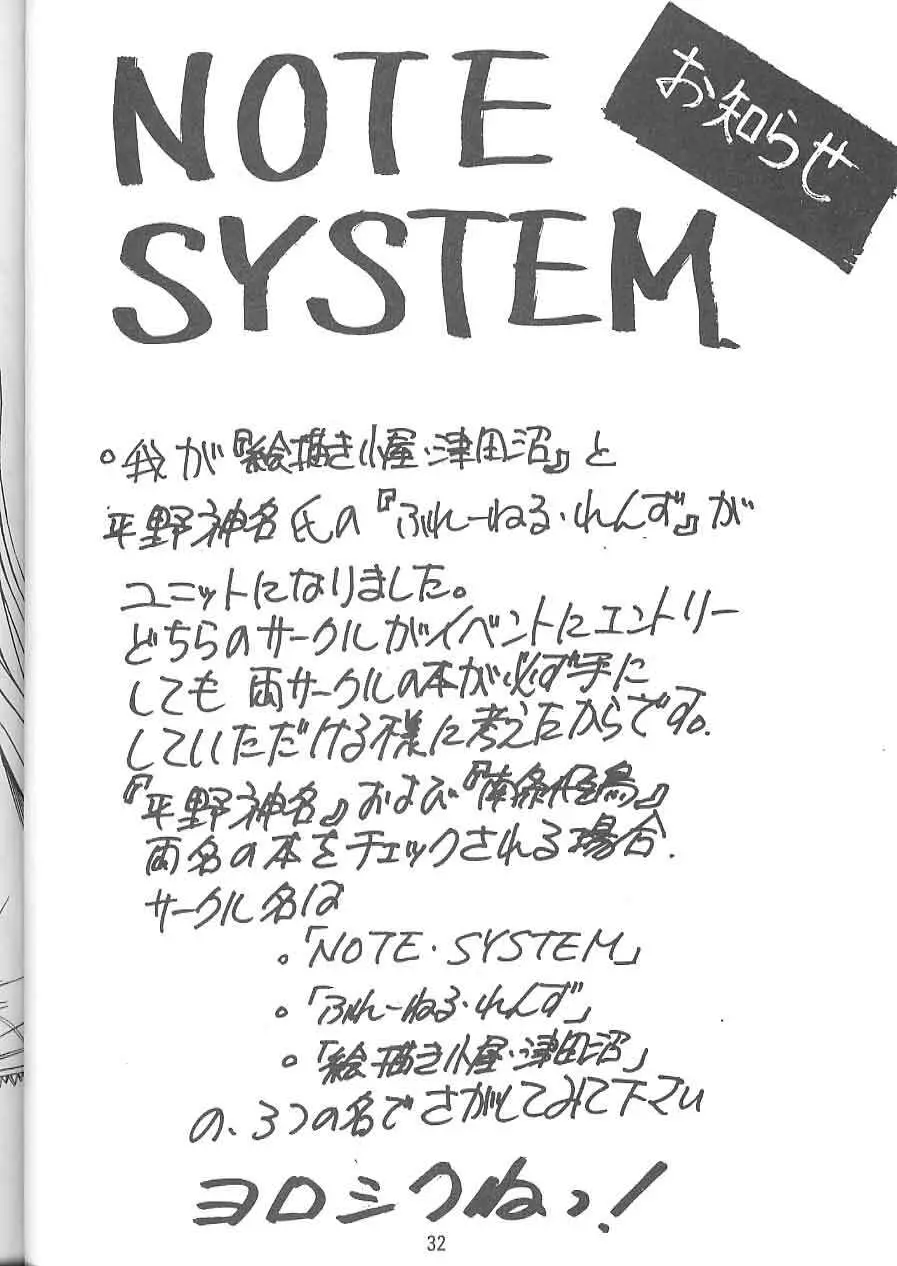 NOTE
SYSTEM
お知らせ
。我が『絵描き小屋・津田沼』と
平野神名氏の『ふれーねる・れんず』が
ユニットになりました。
どちらのサークルがイベントにエントリー
しても 両サークルの本が必ず手に
していただける様に考えたからです。
『平野神名』および『南条怪鳥』
両名の本をチェックされる場合.
サークル名は
。「NOTE・SYSTEM」
。「ふれーねる・れんず」
。「絵描き小屋・津田沼」
の、3つの名でさがしてみて下さい
ヨロシクねっ!
32